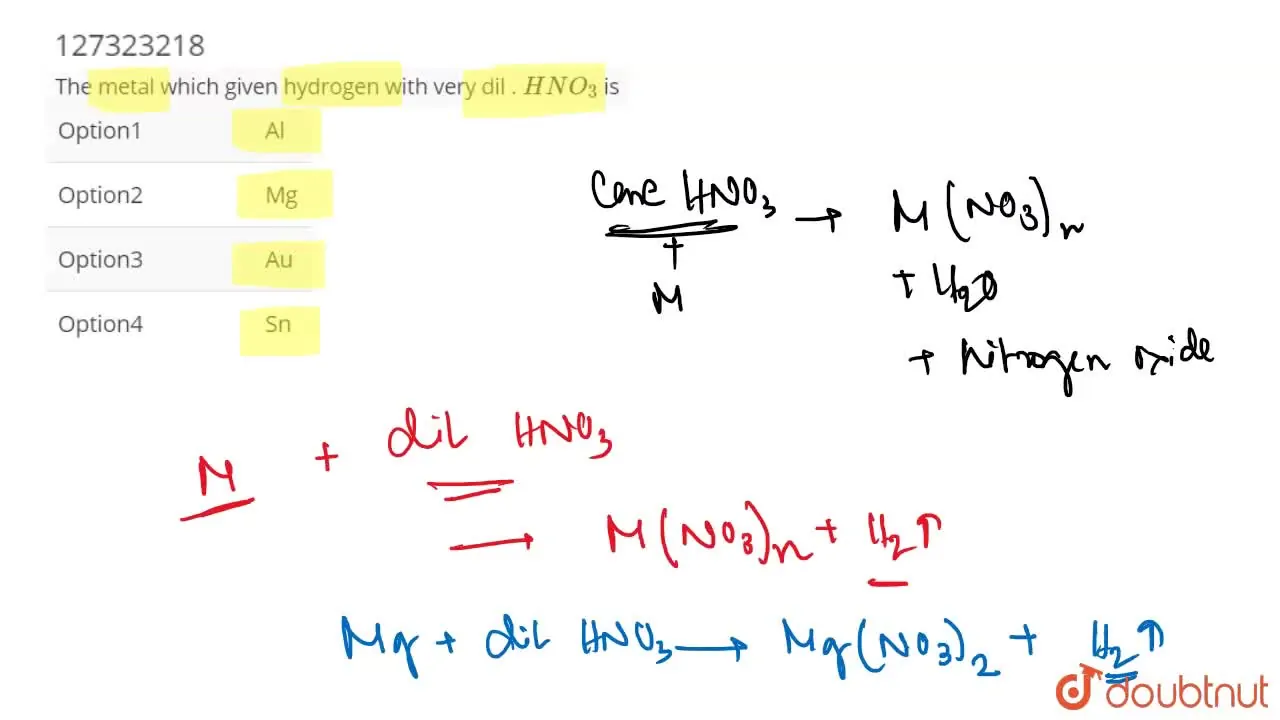 127323218
The metal which given hydrogen with very dil . HNO₃ is
Option1 Al
Option2 Mg
Option3 Au
Option4 Sn
Conc HNO₃ → M(NO₃)ₙ
+
M
+ H₂O
+ Nitrogen oxide
M + dil HNO₃
→ M(NO₃)ₙ + H₂↑
Mg + dil HNO₃ → Mg(NO₃)₂ + H₂↑
doubtnut